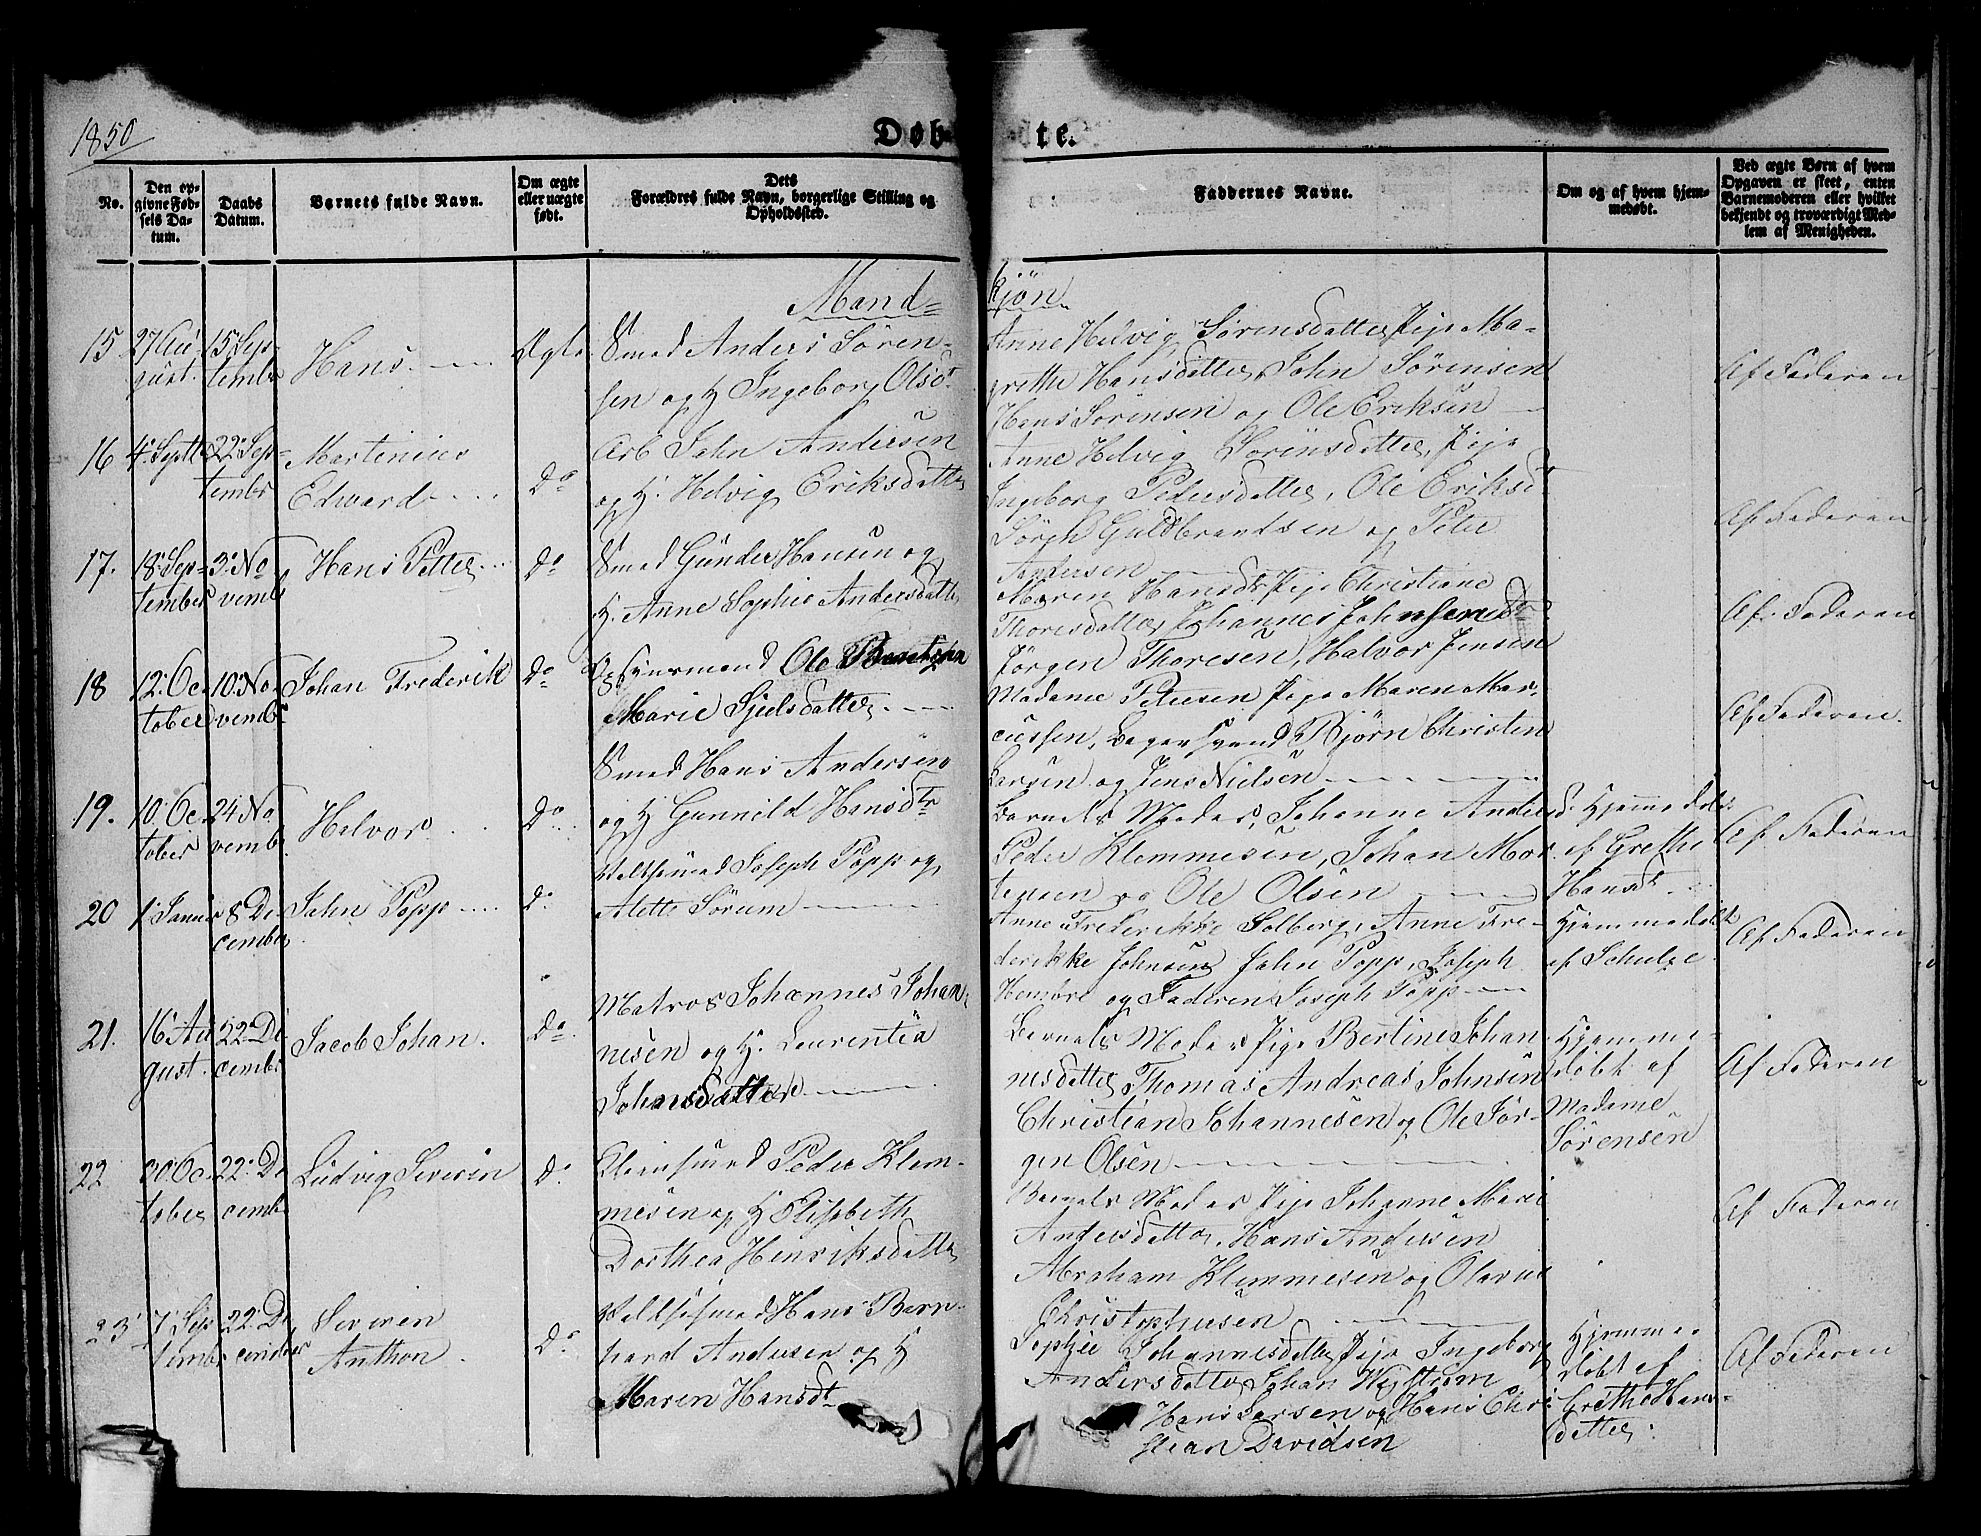 1850
Døbte.
No.
Den opgivne Fødsels Datum.
Daabs Datum.
Barnets fulde Navn.
Om ægte eller uægte født.
Dets Forældres fulde Navn, borgerlige Stilling og Opholdssted.
Faddernes Navne.
Om og af hvem hjemmedøbt.
Ved ægte Børn af hvem Opgaven er skeet, enten Barnemoderen eller hvilket bekjendt og troværdigt Medlem af Menigheden.
Mand=
kjön
15 27 Au-
gust
15 Sep-
tembr
Hans
Ægte
Smed Anders Sören-
sen og H Ingeborg Olsdr
Anne Helvig Sörensdatter, Pige Ma-
grethe Hansdatter, John Sörensen
Hans Sörensen og Ole Eriksen
Af Faderen
16 4 Septb 22 Sep-
tembr
Martinius
Edward
Do
Arb John Andersen
og H. Helvig Eriksdatter
Anne Helvig Sörensdatter, Pige
Ingeborg Pedersdatter, Ole Eriksen
Sören Guldbrandsen og Peter
Andersen
Af Faderen
17. 18 Sep-
tember
3 No-
vemb
Hans Petter
Do
Smed Gunder Hansen og
H. Anne Sophie Andersdatter
Maren Hansdtr Pige Christiane
Thoresdatter, Johannes Johnsen
Jörgen Thoresen, Halvor Jensen
Af Faderen
18 12 Oc-
tober
10 No-
vemb
Johan Frederik
Do
Opsynsmand Ole Berntsen
Marie Gjelsdatter
Madame Petersen Pige Maren Mar-
cussen, Bagersvend Björn Christen
Larsen og Jens Nielsen
Af Faderen
19. 10 Oc-
tober
24 No-
vemb
Halvor
Do
Smed Hans Andersen
og H Gunnild Hansdtr
Barnets Moder, Johanne Andersd.
Peder Klemmesen, Johan Mor-
tensen og Ole Olsen
Hjemmedöbt
af Grethe
Hansdt
Af Faderen
20 1 Januar 8 De-
cember
John Popp
Do
Valsesmed Joseph Popp og
Alette Sörum
Anne Frederikke Solberg, Anne Fre-
derikke Johnsen John Popp, Joseph
Hembre og Faderen Joseph Popp
Hjemmedöbt
af Schulze
Af Faderen
21. 16 Au-
gust
22 De-
cembr
Jacob Johan.
Do
Matros Johannes Johan-
nesen og H. Laurentia
Johnsdatter
Barnets Moder Pige Bertine Johan-
nesdatter, Thomas Andreas Johnsen
Christian Johannesen og Ole Jör-
gen Olsen
Hjemme-
döbt af
Madame
Sörensen
Af Faderen
22 20 Oc-
tober
22 De-
cemb
Ludvig Severin
Do
Kleinsmed Peder Klem-
mesen og H Elisabeth
Dorthea Henriksdatter
Barnets Moder Pige Johanne Marie
Andersdatter, Hans Andersen
Abraham Klemmesen og Olavus
Christophersen
Af Faderen
23 7 Sep
tembr
22 De-
cember
Severin
Anthon
Do
Valsesmed Hans Bern-
hard Andersen og H
Maren Hansdt
Sophie Johannesdatter, Pige Ingeborg
Andersdatter, Johan Wiström
Hans Larsen og Hans Chri-
stian Davidsen
Hjemme
döbt af
Grethe Hans-
datter
Af Faderen